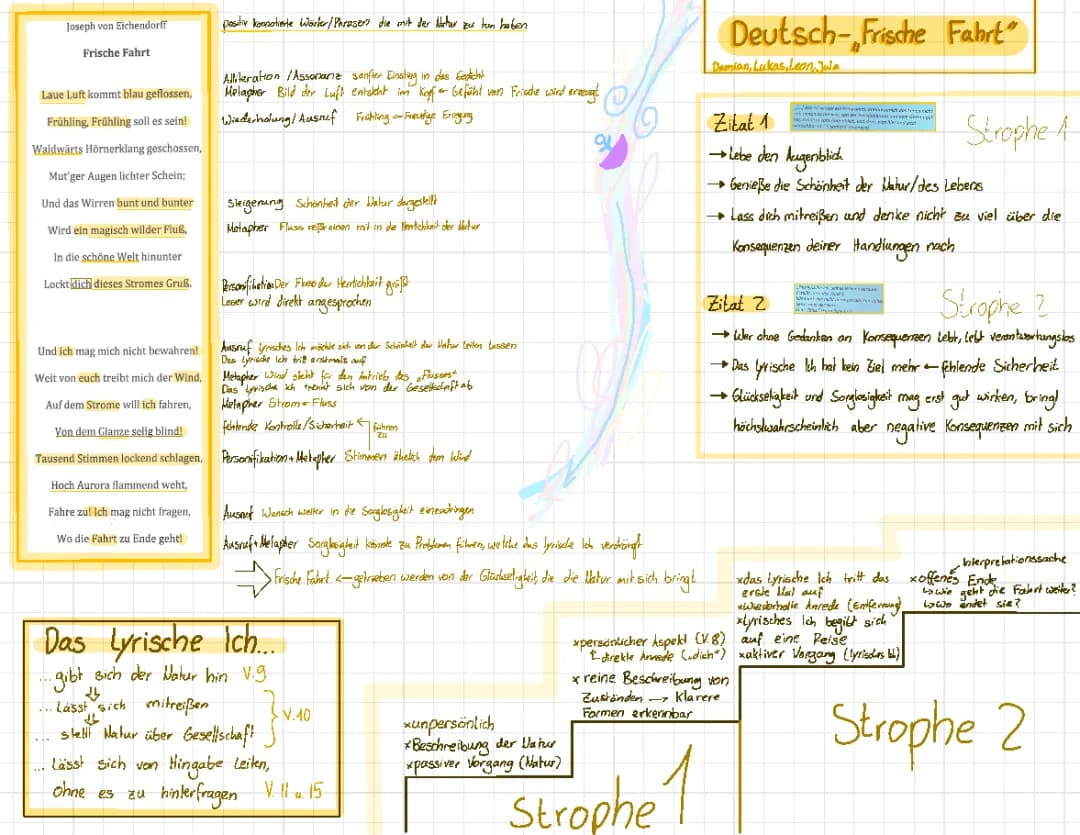 Joseph von Eichendorff
Frische Fahrt
Laue Luft kommt blau geflossen,
Frühling, Frühling soll es sein!
Waldwärts Hörnerklang geschossen,
Mut'ger Augen lichter Schein;
Und das Wirren bunt und bunter
Wird ein magisch wilder Fluß,
In die schöne Welt hinunter
Lockt dich dieses Stromes Gruß.
Und ich mag mich nicht bewahren!
Weit von euch treibt mich der Wind,
Auf dem Strome will ich fahren,
Von dem Glanze selig blind!
Tausend Stimmen lockend schlagen,
Hoch Aurora flammend weht,
Fahre zu! Ich mag nicht fragen,
Wo die Fahrt zu Ende geht!
positiv konnotierte Wörter/Phrasen die mit der Natur zu tun haben
Alliteration /Assonanz sanfter Einstieg in das Gedicht
Metapher Bild der Luft entsteht im Kopf ← Gefühl von Frische wird erzeugt
Wiederholung/Ausruf Frühling → Freudige Erregung
Steigerung Schönheit der Natur dargestellt
Metapher Fluss reißt einen mit in die Herrlichkeit der Natur
Personifikation Der Fluss der Herrlichkeit grüßt
Leser wird direkt angesprochen
Ausruf Lyrisches Ich möchte sich von der Schönheit der Natur leiten lassen
Das Lyrische Ich tritt erstmals auf
Metapher Wind steht für den Antrieb des „Flusses"
Das Lyrische Ich trennt sich von der Gesellschaft ab
Metapher Strom = Fluss
fehlende Kontrolle/Sicherheit ← führen zu
Personifikation + Metapher Stimmen ähneln dem Wind
Ausruf Wunsch weiter in die Sorglosigkeit einzudringen
Ausruf + Metapher Sorglosigkeit könnte zu Problemen führen, welche das lyrische Ich verdrängt
⇒ Frische Fahrt ← getrieben werden von der Glückseligkeit, die die Natur mit sich bringt
Deutsch-„Frische Fahrt"
Damian, Lukas, Leon, Jule
Zitat 1
Strophe 1
→ Lebe den Augenblick
→ Genieße die Schönheit der Natur/des Lebens
→ Lass dich mitreißen und denke nicht zu viel über die
Konsequenzen deiner Handlungen nach
Zitat 2
Strophe 2
→ Wer ohne Gedanken an Konsequenzen lebt, lebt verantwortungslos
→ Das lyrische Ich hat kein Ziel mehr ← fehlende Sicherheit
→ Glückseligkeit und Sorglosigkeit mag erst gut wirken, bringt
höchstwahrscheinlich aber negative Konsequenzen mit sich
Das Lyrische Ich...
... gibt sich der Natur hin V.9
... Lässt sich mitreißen
... stellt Natur über Gesellschaft
V.10
... Lässt sich von Hingabe Leiten,
ohne es zu hinterfragen V. 11 u. 15
×unpersönlich
×Beschreibung der Natur
×passiver Vorgang (Natur)
×persönlicher Aspekt (V. 8)
direkte Anrede („dich")
× reine Beschreibung von
Zuständen → klarere
Formen erkennbar
Strophe 1
×das Lyrische Ich tritt das
erste Mal auf
×wiederholte Anrede (Entfernung)
×Lyrisches Ich begibt sich
auf eine Reise
×aktiver Vorgang (lyrisches Ich)
Interpretationssache
×offenes Ende
↳wie geht die Fahrt weiter?
↳wo endet sie?
Strophe 2